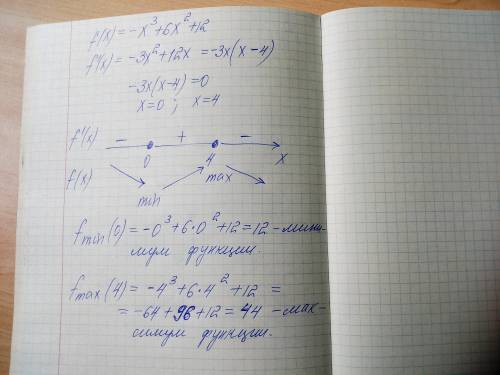 f(x) = -x³+6x²+12
f'(x) = -3x²+12x = -3x(x-4)
-3x(x-4)=0
x=0 ; x=4
f'(x) - + -
0 4 x
f(x) max
min
f min (0) = -0³+6·0²+12=12 - мини-
мум функции.
f max (4) = -4³+6·4²+12 =
= -64+96+12 = 44 - мак-
симум функции.